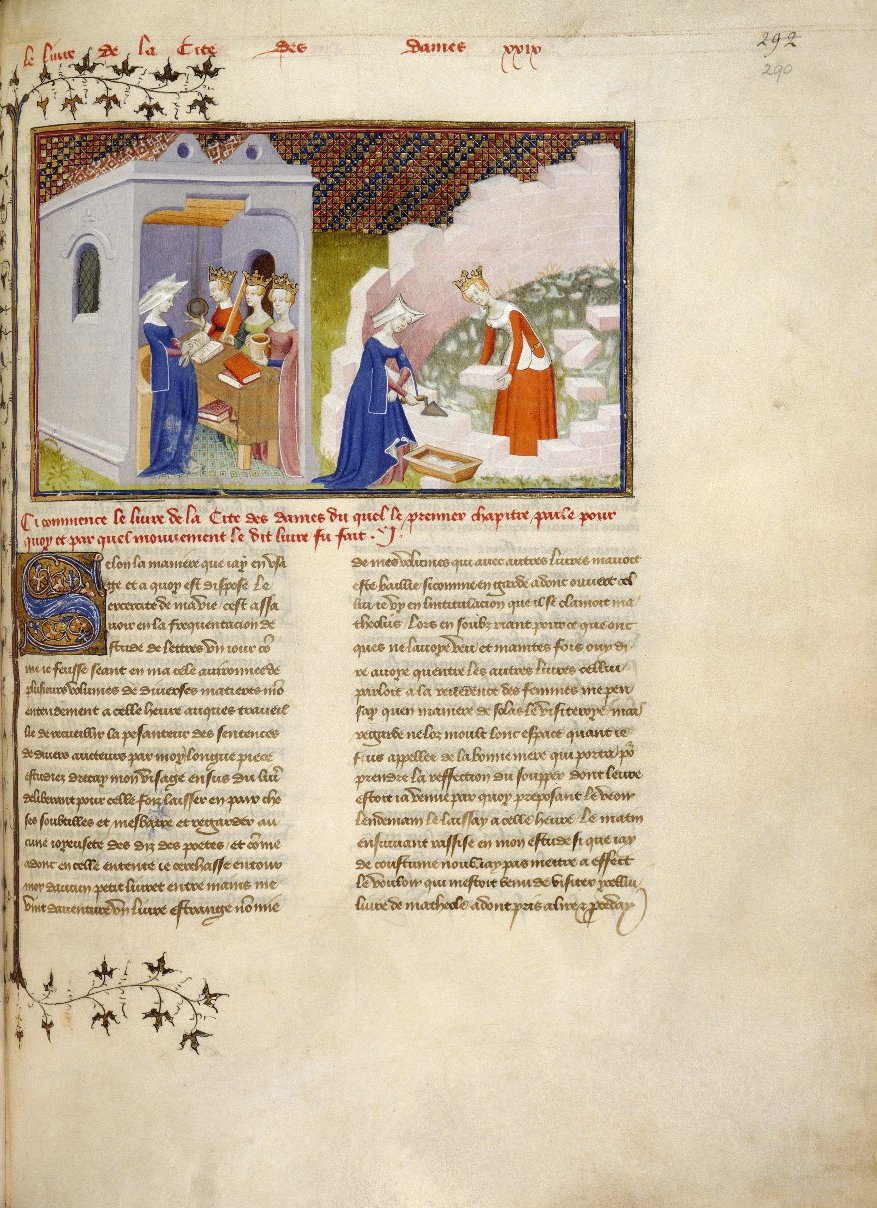 le liure de la Cite des dames xxix
292
290
Ci commence le liure de la Cite des dames du quel le premier chapitre parle pour
quoy et par quel mouuement le dit liure fu fait . I .
Selon la maniere que iay en vsa
ige et a quoy est dispose le
excercite de ma vie cest assa
uoir en la frequentacion de
stude de lettres vn iour co
me ie feusse seant en ma cele auironnee de
plusieurs volumes de diuerses matieres mo
entendement a celle heure auques traueil
lie de recueillir la pesanteur des sentences
de diuers aucteurs par moy longue piece
estudiez drecay mon visage ensus du liure
deliberant pour celle foiz laisser en paix cho
ses soubtilles et mesbatre et regarder au
cune ioyeusete des diz des poetes et come
adonc en celle entente ie cerchasse entour
moy daucun petit liuret entre mains me
vint dauenture vn liure estrange nomme
de mes volumes qui auec autres liures mauoit
este baillie si comme en garde adonc ouuert cel
lui ie vy en lintitulacion que il se clamoit ma
theolus Lors en soubz riant pour ce que onc
ques ne lauoye veu et maintes fois ouy di
re auoye quentre les autres liures cellui
parloit a la reuerence des femmes me pen
say quen maniere de solas le visiteroye mais
regarde ne loz moult lonc espace quant ie
fus appellee de la bonne mere qui porta po
prendre la reffection du soupper dont leure
estoit ia venue par quoy preposant le veoir
lendemain le laissay a celle heure Le matin
ensuiuant rassise en mon estude si que iay
de coustume noubliay pas mettre a effect
le vouloir qui mestoit venu de visiter icellui
liure de matheole adont pris a lire et proceday